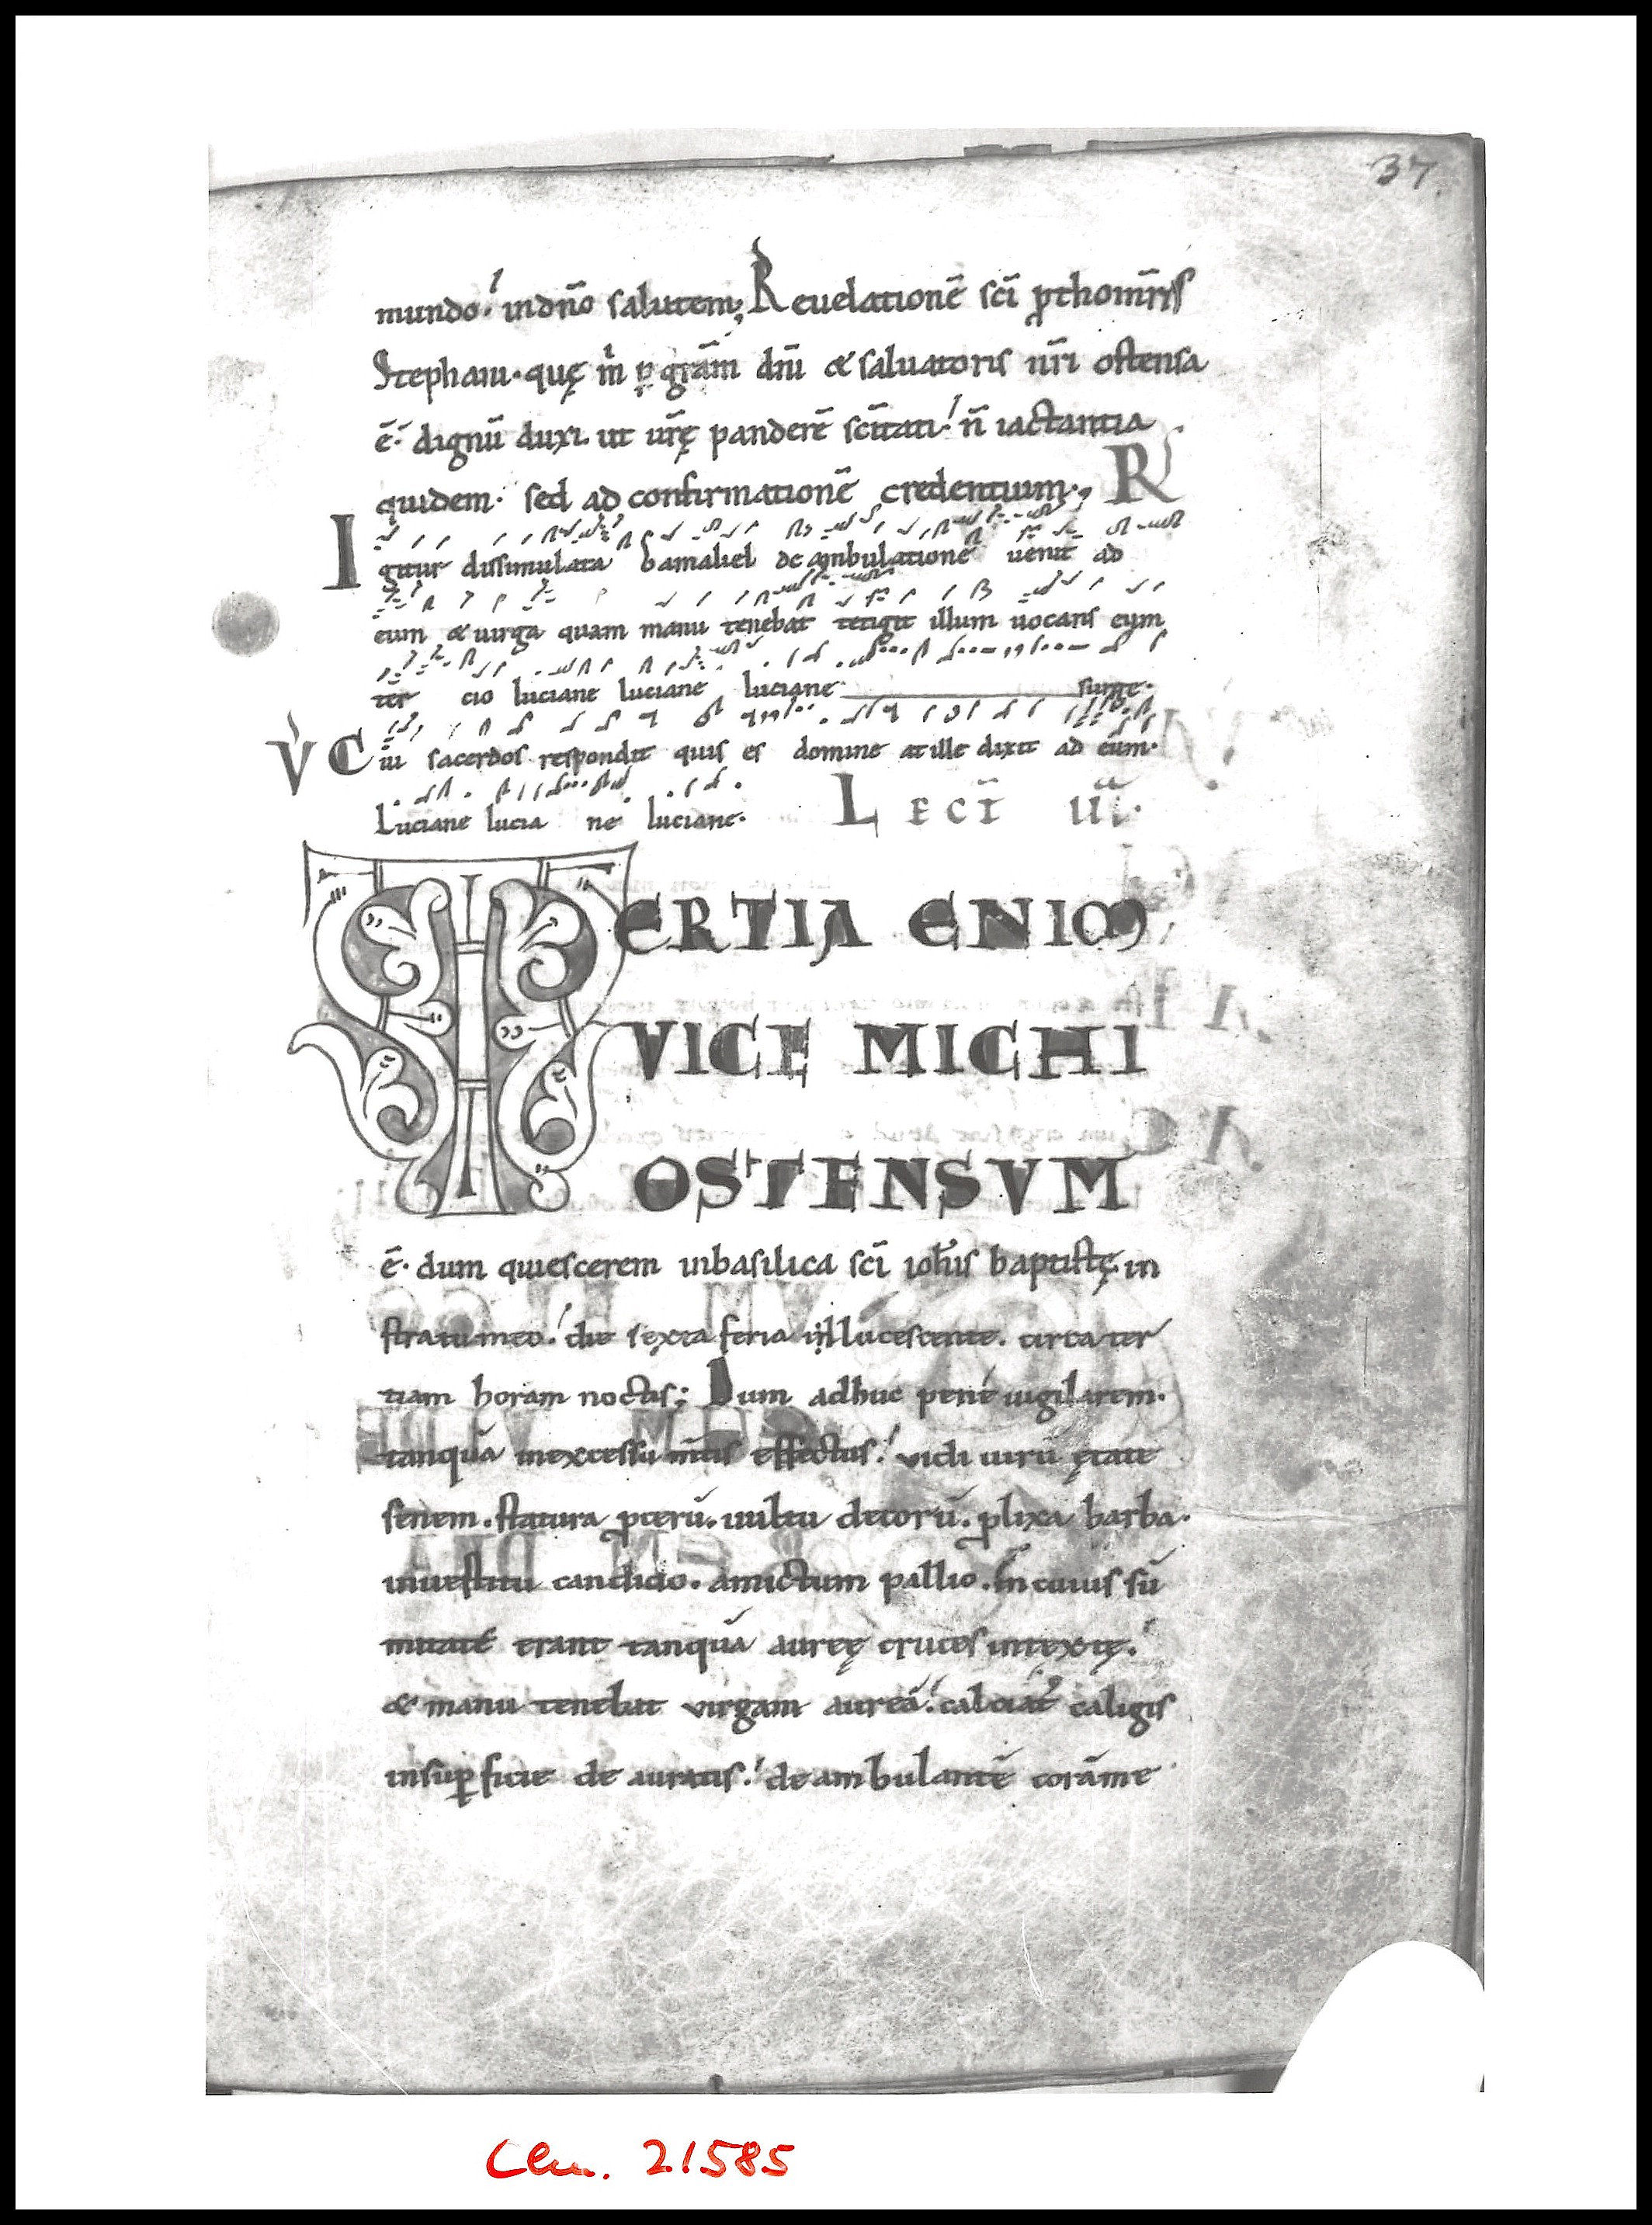 37
mundo. indn̄o salutem; Reuelationē sc̄i ꝓthom̄ris
Stephani. quę m̄ ꝑ gr̄am dn̄i & saluatoris nr̄i ostensa
ē. dignū duxi. ut ur̄ę panderē sc̄itati. n̄ iactantia
quidem. sed ad confirmationē credentium., R
Igitur dissimulata Gamaliel deambulatione uenit ad
eum & uirga quam manu tenebat tetigit illum uocans eum
ter cio luciane luciane luciane surge.
V Cui sacerdos respondit quis es domine at ille dixit ad eum.
Luciane lucia ne luciane. LECT̄
TERTIA ENIM
VICE MICHI
OSTENSVM
ē. dum quiescerem inbasilica sc̄i ioh̄is baptistę. in
stratu meo. die sexta feria illucescente. circa ter
tiam horam noctis; Dum adhuc pene uigilarem.
tanquā inexcessu m̄tis effectus. vidi uirū ętate
senem. statura ꝓcerū. uultu decorū. ꝓlixa barba.
inuestitu candido. amictum pallio. In cuius sū
mitate erant tanquā aureę cruces intextę.
& manu tenebat virgam aureā. calciat᷒ caligis
insuꝑficie de auratis. de ambulantē corāme
Clm. 21585